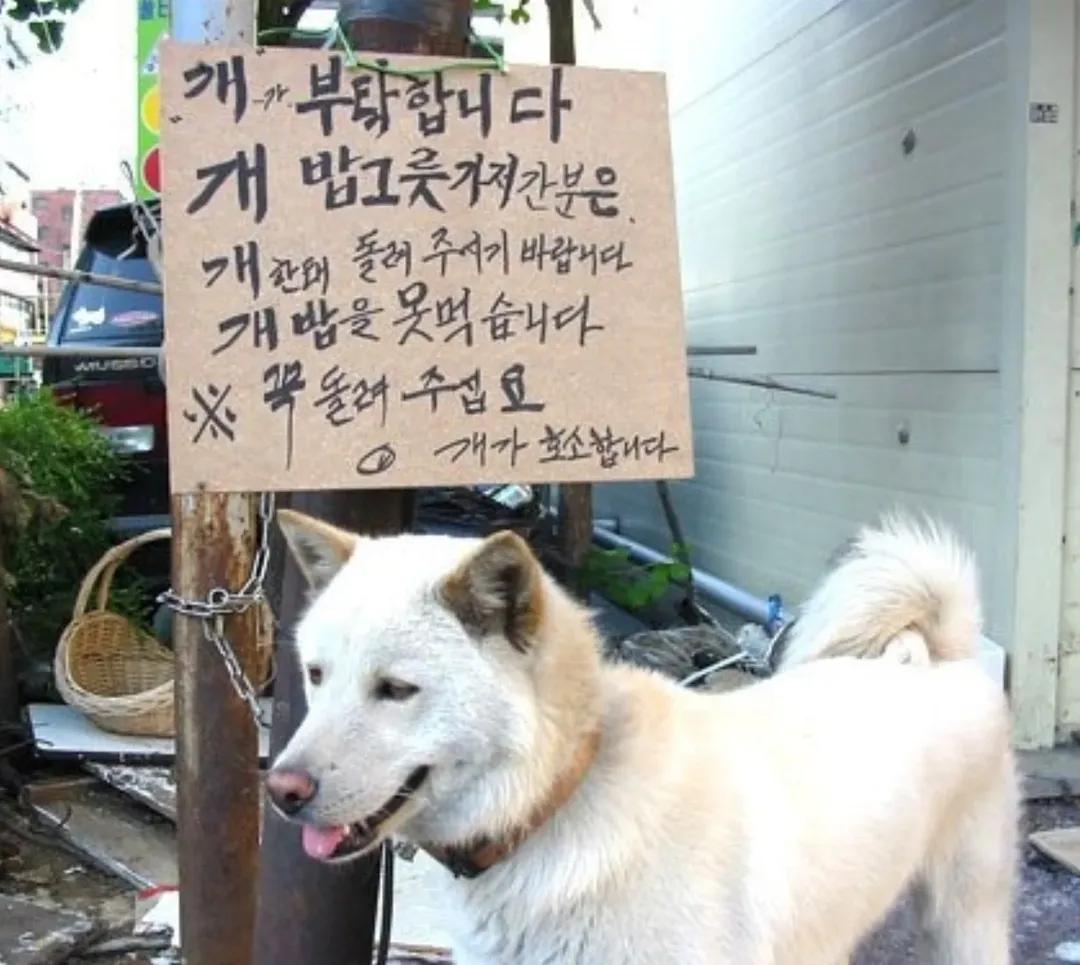 개가 부탁합니다
개 밥그릇 가저간분은.
개한테 돌려 주시기 바랍니다
개 밥을 못먹습니다
※ 꼭 돌려 주섭요
개가 호소합니다
MUSSO